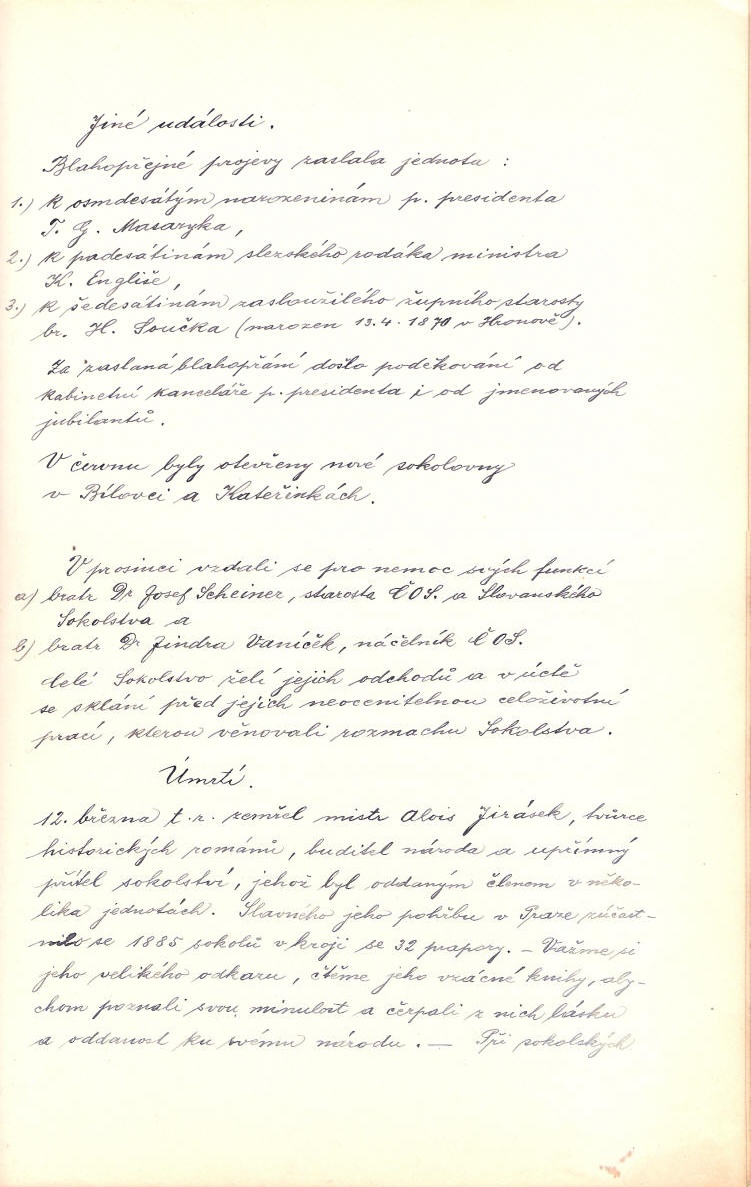 Jiné události.
Blahopřejné projevy zaslala jednota :
1.) k osmdesátým narozeninám p. presidenta
T. G. Masaryka,
2.) k padesátinám slezského rodáka ministra
K. Engliše,
3.) k šedesátinám zasloužilého župního starosty
br. H. Součka (narozen 13.4.1870 v Hronově).
Za zaslaná blahopřání došlo poděkování od
kabinetní kanceláře p. presidenta i od jmenovaných
jubilantů.
V červnu byly otevřeny nové sokolovny
v Bílovci a Kateřinkách.
V prosinci vzdali se pro nemoc svých funkcí
a) bratr Dr Josef Scheiner, starosta ČOS. a Slovanského
Sokolstva a
b) bratr Dr Jindra Vaníček, náčelník ČOS.
Celé Sokolstvo želí jejich odchodů a v úctě
se sklání před jejich neocenitelnou celoživotní
prací, kterou věnovali rozmachu Sokolstva.
Úmrtí.
12. března t.r. zemřel mistr Alois Jirásek, tvůrce
historických románů, buditel národa a upřímný
přítel sokolství, jehož byl oddaným členem v něko-
lika jednotách. Slavného jeho pohřbu v Praze zúčast-
nilo se 1885 sokolů v kroji se 32 prapory. - Važme si
jeho velikého odkazu, čtěme jeho vzácné knihy, aby-
chom poznali svou minulost a čerpali z nich lásku
a oddanost ku svému národu. — Při sokolských